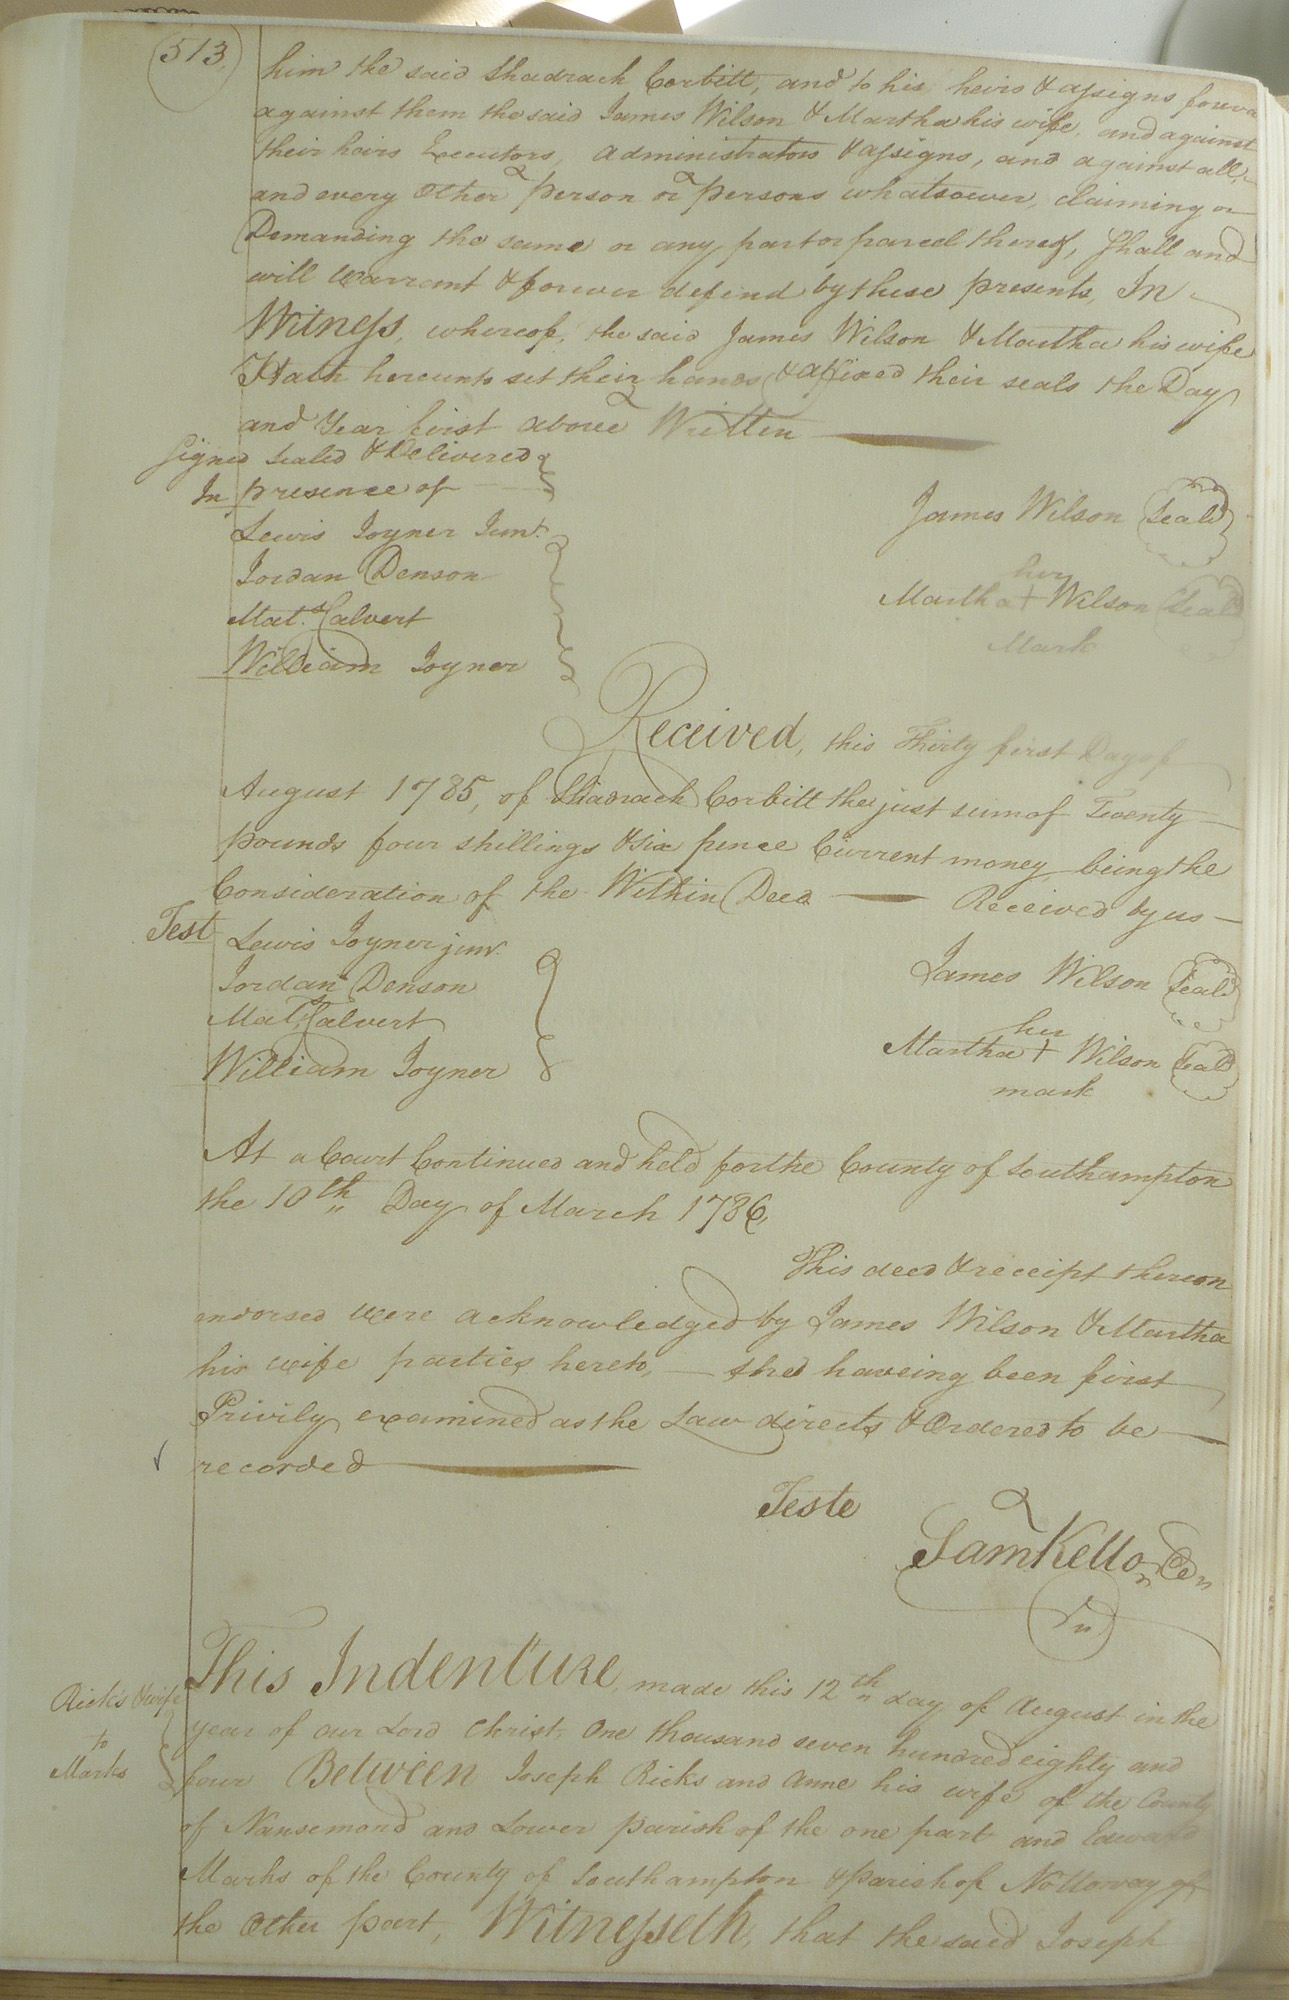 513,
him the said Shadrach Corbitt, and to his heirs & assigns forever
against them the said James Wilson & Martha his wife, and against
their heirs Executors, administrators & assigns, and against all,
and every other person or persons whatsoever, claiming or
Demanding the same or any part or parcel thereof, shall and
will warrant & forever defend by these presents, In
Witness, whereof, the said James Wilson & Martha his wife
Hath hereunto set their hands & affixed their seals the Day
and Year first above Written
Signed Sealed & Delivered
In presence of
Lewis Joyner Junr.
Jordan Denson
Mats. Calvert
William Joyner
James Wilson Seal
her
Martha + Wilson Seal
Mark
Received, this Thirty first Day of
August 1785, of Shadrach Corbitt the just sum of Twenty
pounds four shillings & six pence Current money, being the
Consideration of the Within Deed Received by us
Test
Lewis Joyner junr.
Jordan Denson
Mats. Calvert
William Joyner
James Wilson Seal
her
Martha + Wilson Seal
mark
At a Court Continued and held for the County of Southampton
the 10th Day of March 1786,
This deed & receipt thereon
endorsed were acknowledged by James Wilson & Martha
his wife parties hereto, she haveing been first
Privily examined as the Law directs & Ordered to be
recorded
Teste
Sam Kello, Ce
Ricks & wife
to
Marks
This Indenture, made this 12th day of August in the
year of our Lord Christ, One thousand seven hundred eighty and
four Between Joseph Ricks and Anne his wife of the County
of Nansemond and Lower parish of the one part and Edward
Marks of the County of Southampton & parish of Nottoway of
the Other part, Witnesseth, that the said Joseph